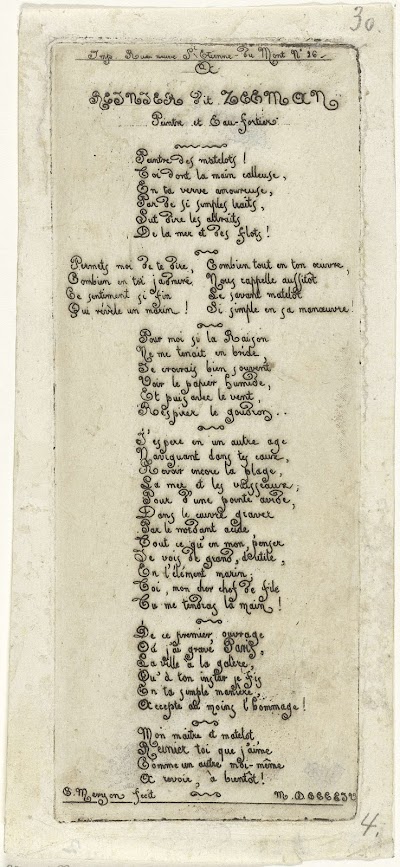 30.
Imp. Rue neuve St Etienne du Mont No 26.
A
REINIER dit ZEEMAN
Peintre et Eau-fortier
Peintre des matelots !
Toi dont la main calleuse,
En ta verve amoureuse,
Par de si simples traits,
Sut dire les attraits
De la mer et des flots !
Permets moi de te dire,
Combien en toi j'admire
Ce sentiment si fin
Qui révèle un marin !
Combien tout en ton œuvre,
Nous rappelle aussitôt
Le savant matelot
Si simple en sa manœuvre.
Pour moi si la Raison
Ne me tenait en bride,
Je croirais bien souvent
Voir le papier humide,
Et puis avec le vent,
Respirer le goudron..
J'espère en un autre age
Naviguant dans tes eaux,
Revoir encore la plage,
La mer et les vaisseaux;
Pour d'une pointe avide,
Dans le cuivre graver
Par le mordant acide
Tout ce qu'en mon penser
Je vois de grand, d'utile,
En l'élément marin;
Toi, mon cher chef de file
Tu me tendras la main !
De ce premier ouvrage
Où j'ai gravé Paris,
La ville à la galère,
Qu'à ton instar je fis
En ta simple manière,
Accepte au moins l'hommage !
Mon maître et matelot,
Reinier toi que j'aime
Comme un autre moi-même
Au revoir, à bientôt !
C. Meryon fecit
M. DCCCLIV
4.